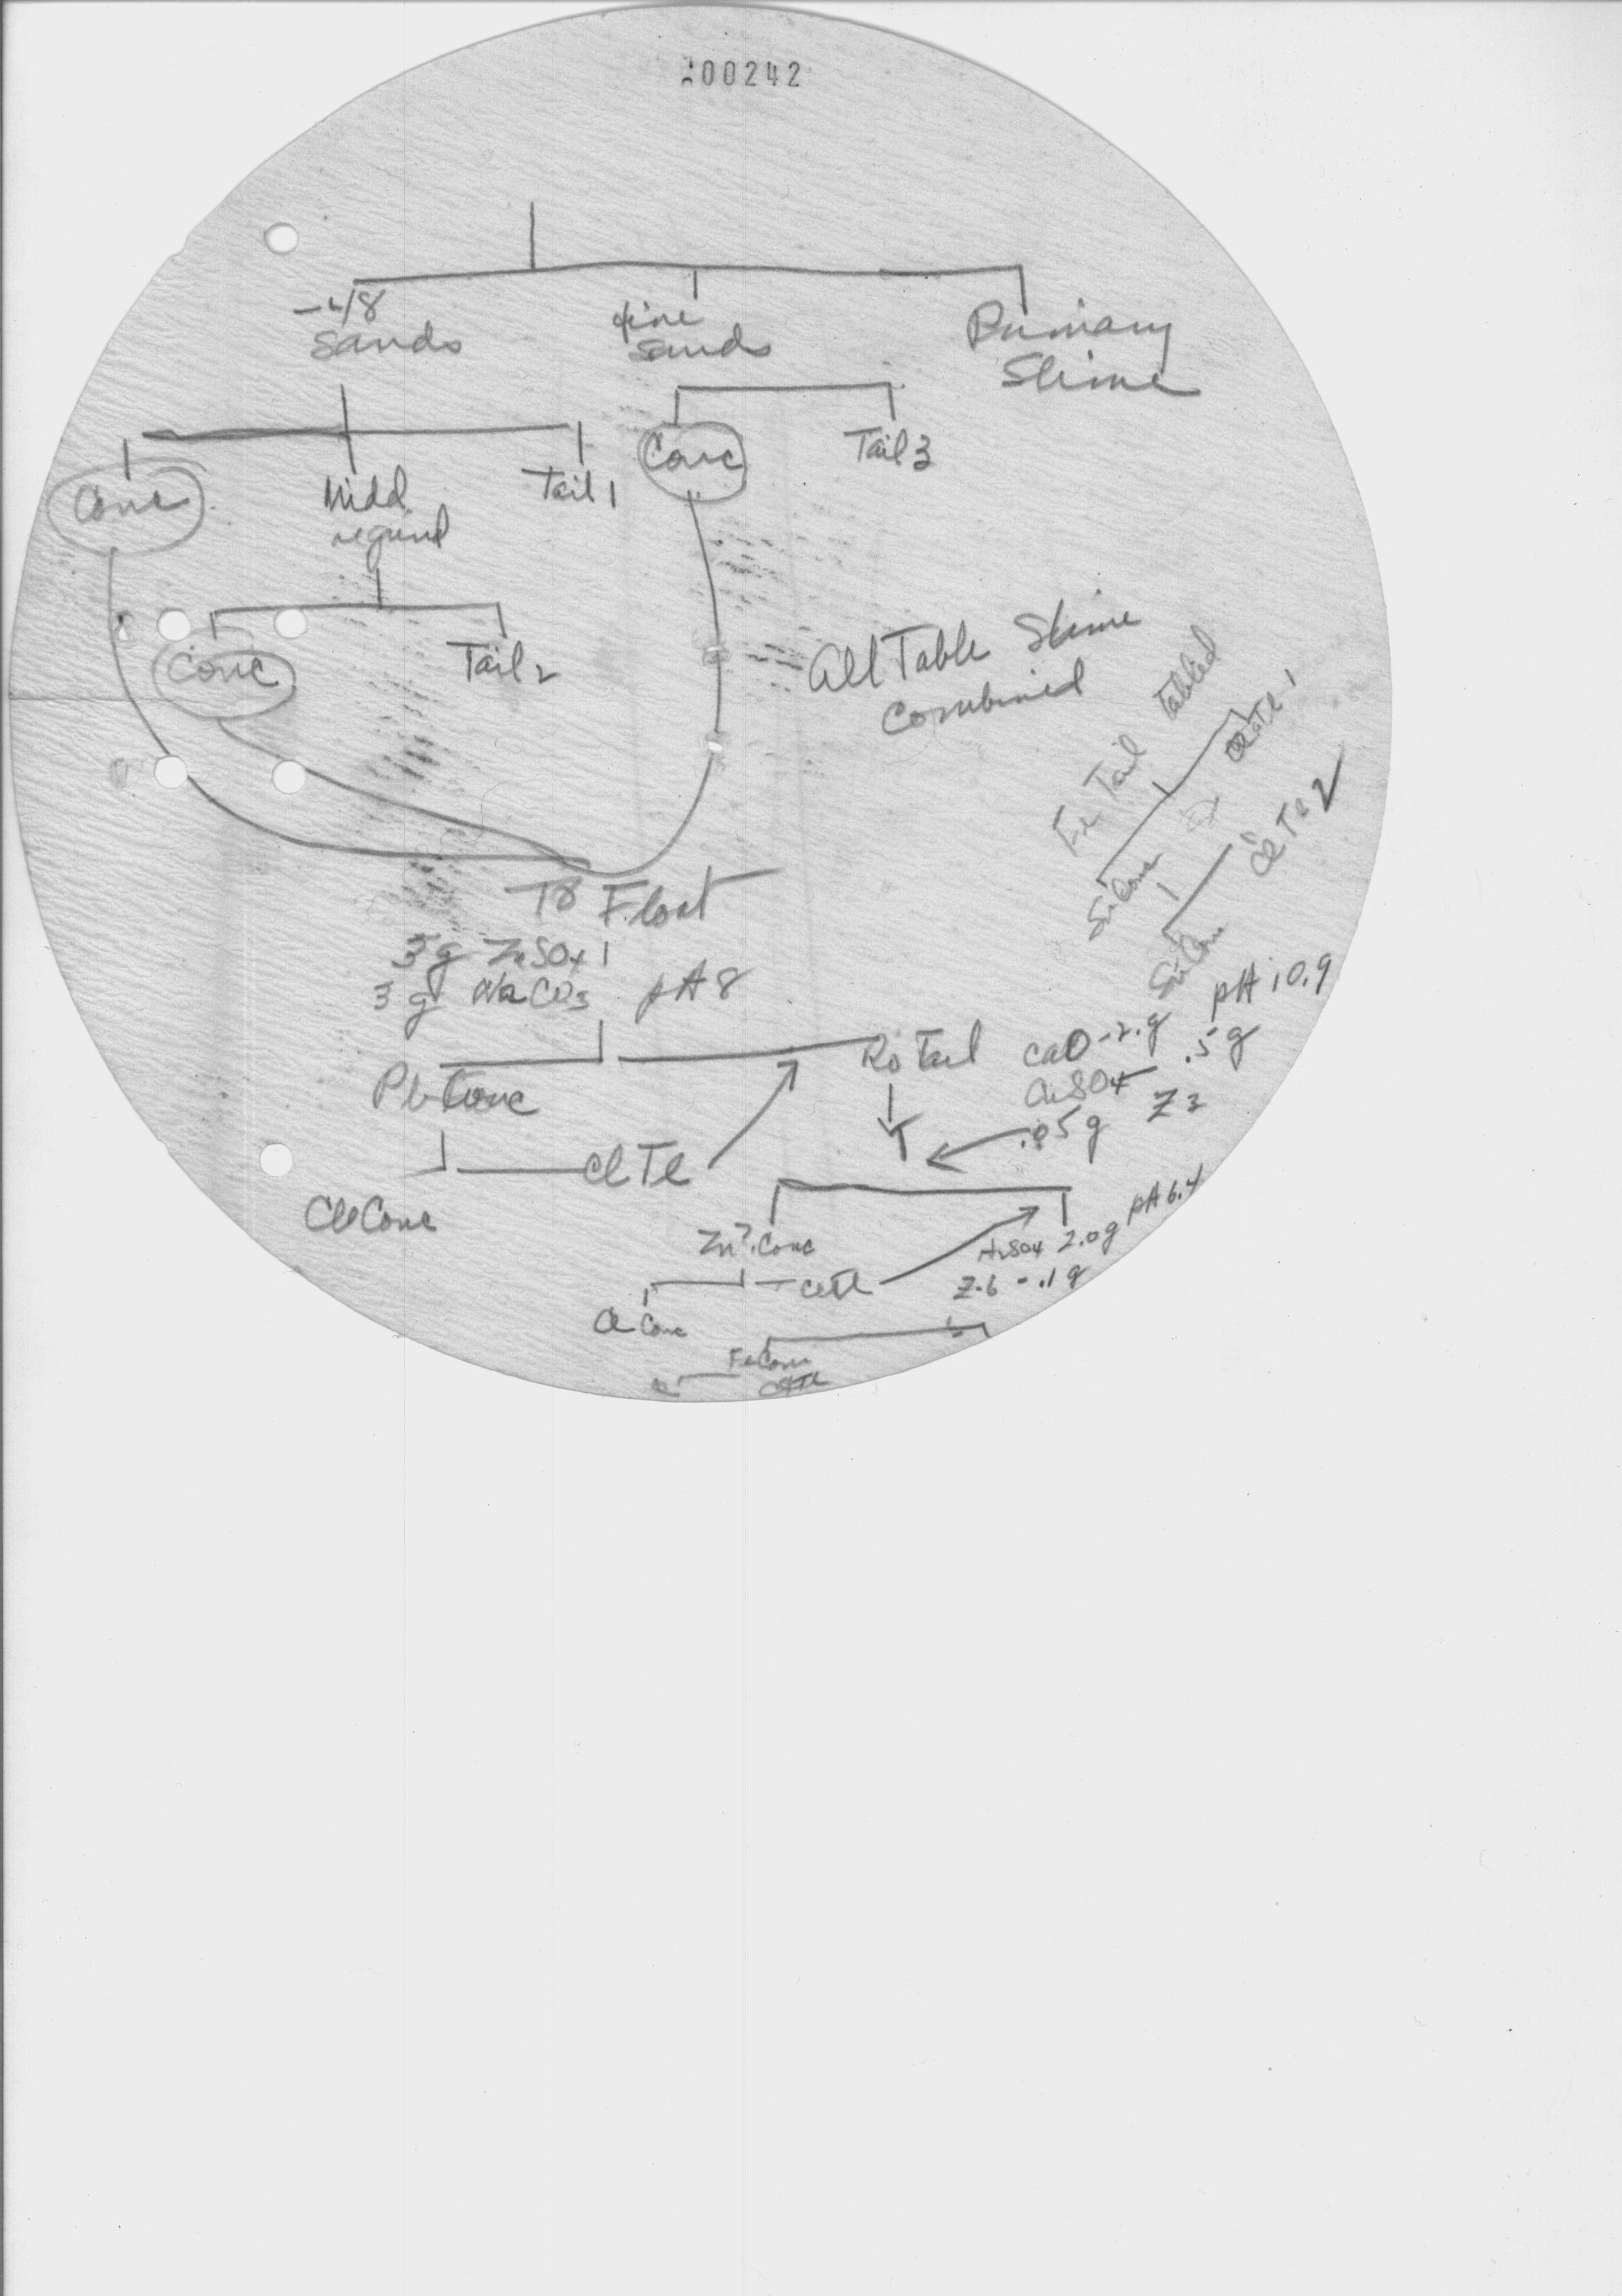 00242
-48
Sands
fine
sands
Primary
Slime
Conc
Midd
regrind
Tail 1
Conc
Tail 3
Conc
Tail 2
All Table Slime
Combined
Fe Tail Tabled
Sn Conc
Cl Tl 1
Sn Conc
Cl Tl 2
To Float
3g ZnSO4
3g NaCO3 pH 8
Pb Conc
Ro Tail
CaO - 2.g pH 10.9
CuSO4 .5g
.05g Z3
Cl Tl
Cl Conc
Zn Conc
H2SO4 2.0g pH 6.4
Z-6 - .1g
Cl Tl
Cl Conc
Fe Conc
Cl Tl